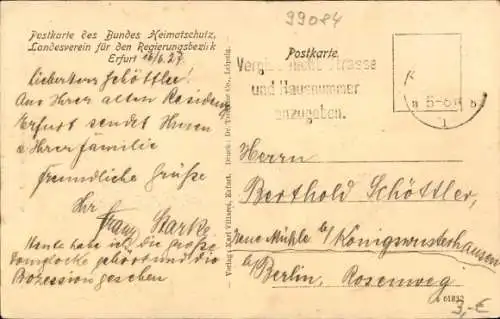 99084
Postkarte des Bundes Heimatschutz,
Landesverein für den Regierungsbezirk
Erfurt 16/6.27.
Lieber Herr Schöttler!
Aus Ihrer alten Residenz
Erfurt sendet Ihnen
u Ihrer Familie
freundliche Grüße
Ihr
Franz Starke
Heute habe ich die große
Domglocke gehört und die
Prozession gesehen
Verlag: Karl Villaret, Erfurt. Druck: Dr. Trenkler Co., Leipzig.
Postkarte
Vergiß nicht Strasse
und Hausnummer
anzugeben.
5-6 N
Herrn
Berthold Schöttler,
Neue Mühle b/ Königswusterhausen
b/ Berlin, Rosenweg
61832
3,-€